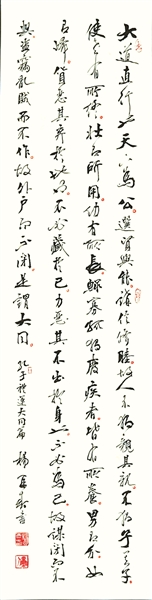 大道之行也天下為公選賢與能講信修睦故人不獨親其親不獨子其子
使老有所終壯有所用幼有所長鰥寡孤獨廢疾者皆有所養男有分女
有歸貨惡其棄於地也不必藏於己力惡其不出於身也不必為己故謀閉而不
興盜竊亂賊而不作故外戶而不閉是謂大同 孔子禮運大同篇 楊